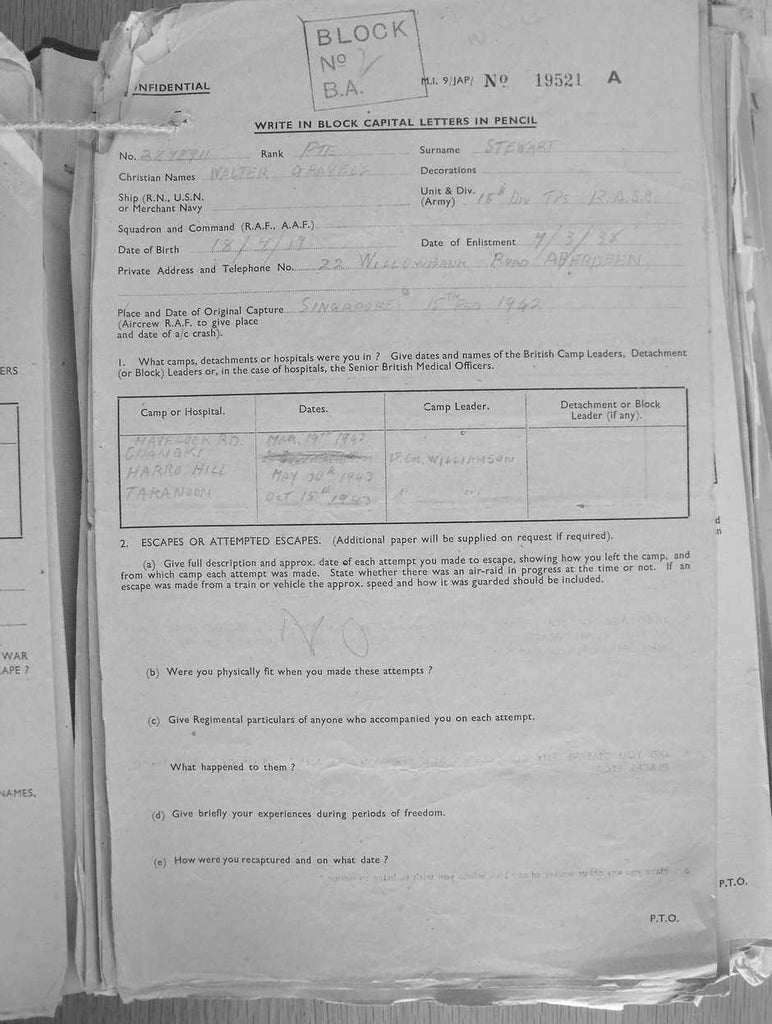 BLOCK
No 2
B.A.
NFIDENTIAL
M.I. 9/JAP/ No 19521 A
WRITE IN BLOCK CAPITAL LETTERS IN PENCIL
No. Rank PTE Surname STEWART
Christian Names WALTER Decorations
Ship (R.N., U.S.N. or Merchant Navy
Unit & Div. (Army) 18th DIV TPS R.A.S.C.
Squadron and Command (R.A.F., A.A.F.)
Date of Birth 18/7/19 Date of Enlistment 7/3/38
Private Address and Telephone No. 22 WILLOWBANK ROAD ABERDEEN
Place and Date of Original Capture SINGAPORE 15TH FEB 1942
(Aircrew R.A.F. to give place
and date of a/c crash).
1. What camps, detachments or hospitals were you in ? Give dates and names of the British Camp Leaders, Detachment
(or Block) Leaders or, in the case of hospitals, the Senior British Medical Officers.
Camp or Hospital. Dates. Camp Leader. Detachment or Block Leader (if any).
HAVELOCK RD. MAR. 19TH 1942
CHANGKI LT. COL. WILLIAMSON
HARRO HILL MAY 30th 1943
TARANOOM OCT 15th 1943
2. ESCAPES OR ATTEMPTED ESCAPES. (Additional paper will be supplied on request if required).
(a) Give full description and approx. date of each attempt you made to escape, showing how you left the camp, and
from which camp each attempt was made. State whether there was an air-raid in progress at the time or not. If an
escape was made from a train or vehicle the approx. speed and how it was guarded should be included.
NO
(b) Were you physically fit when you made these attempts ?
(c) Give Regimental particulars of anyone who accompanied you on each attempt.
What happened to them ?
(d) Give briefly your experiences during periods of freedom.
(e) How were you recaptured and on what date ?
P.T.O.
P.T.O.
ERS
WAR
APE ?
NAMES,
d
n